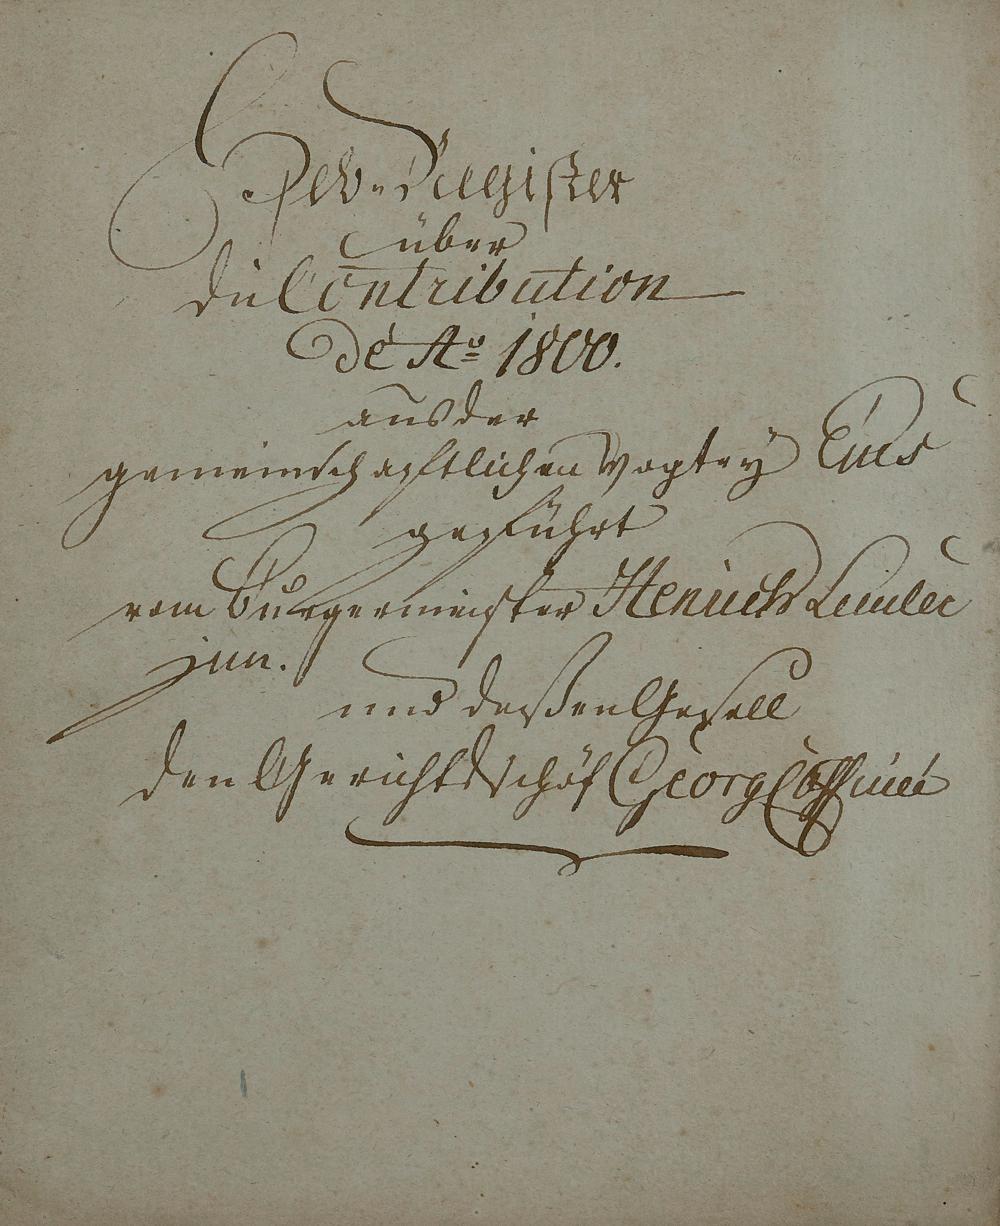 Heb-Register
über
die Contribution
de Aō 1800.
aus der
gemeinschaftlichen Vogtey Ems
geführt
vom Burgermeister Henrich
jun.
und deßen Gesell
den Gerichtsschöf Georg